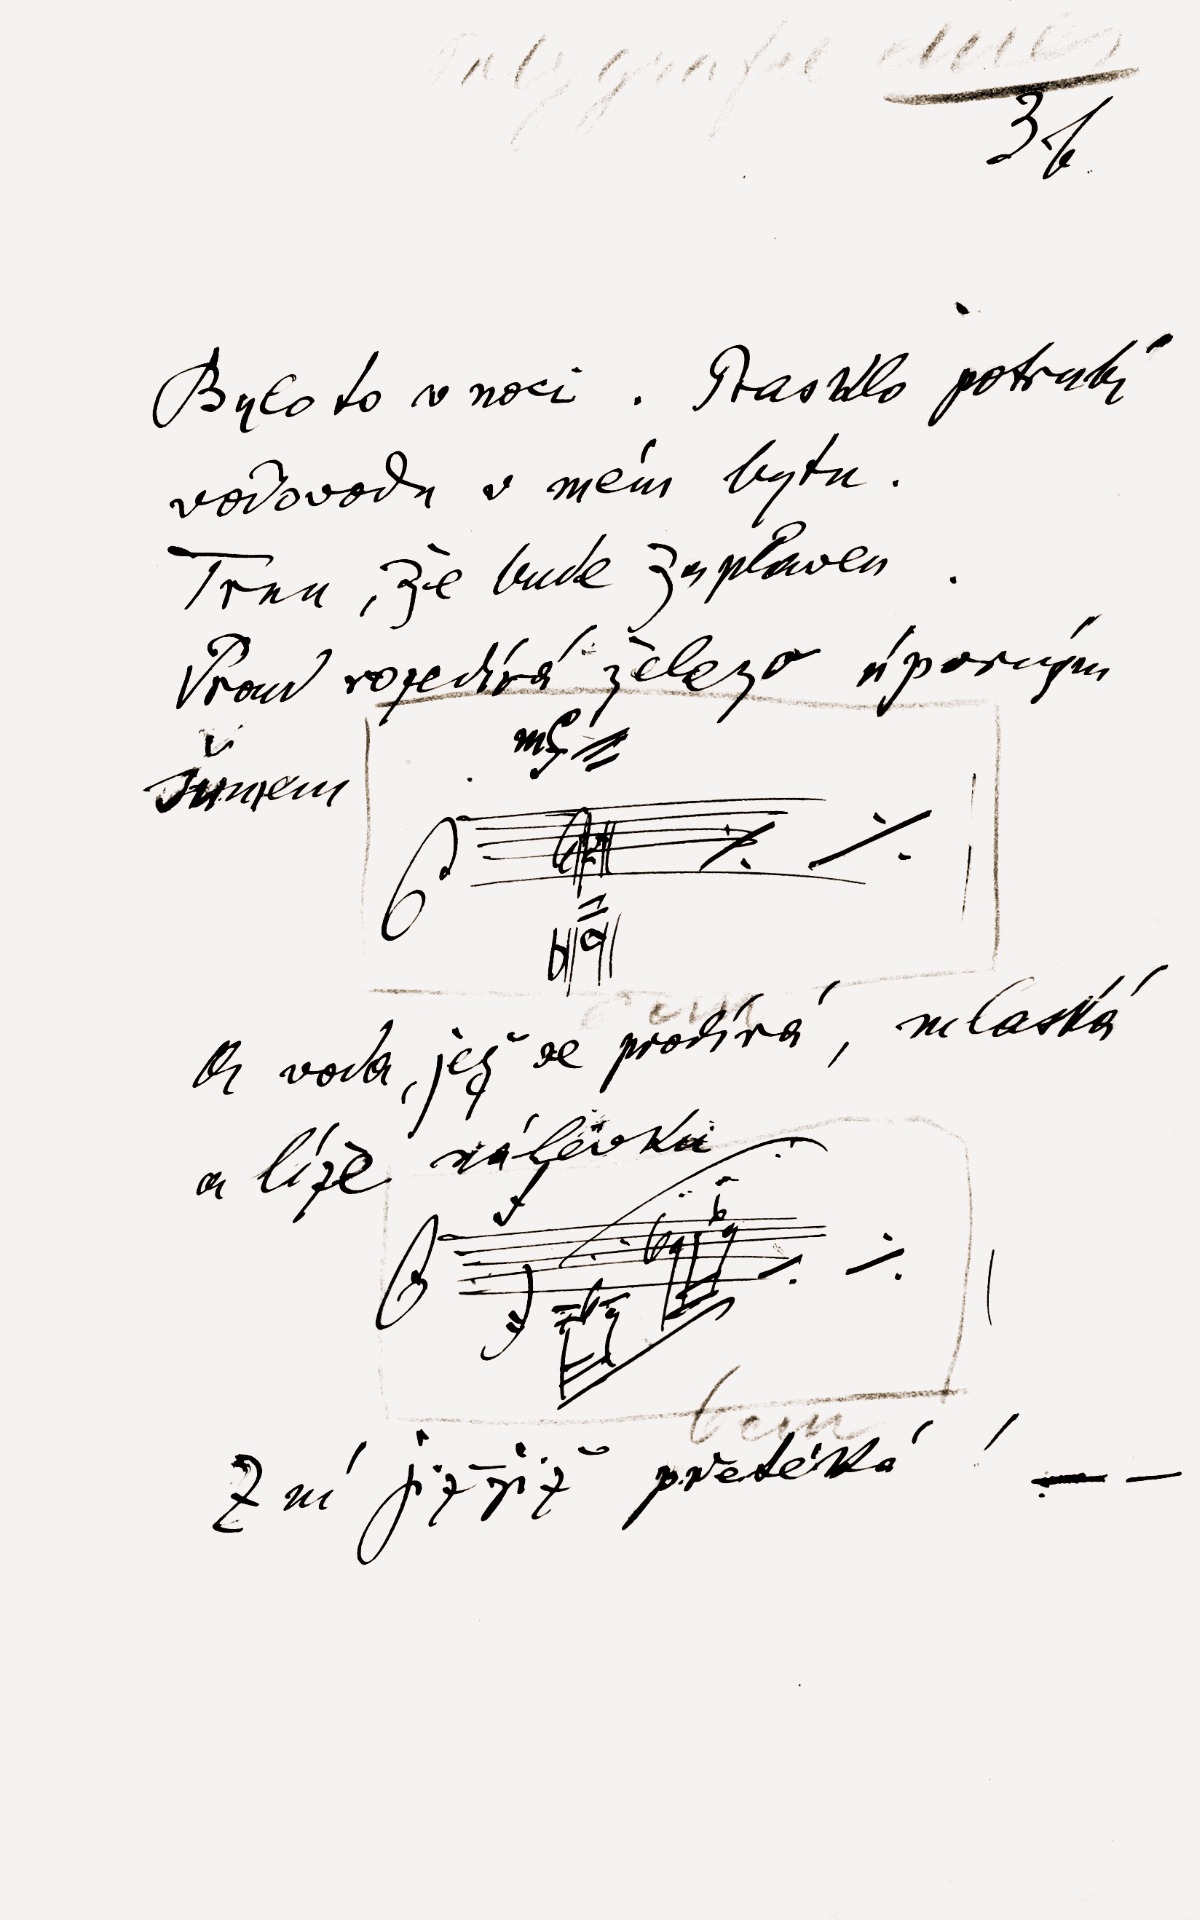 3b
Bylo to v noci. Prasklo potrubí
vodovodu v mém bytu.
Trnu, že bude zaplaven.
Proud rozedírá železo úporným
šumem
mf
A voda, jež se prodírá, mlaská
a líže nálevku
Zní jiz-jiz přetéká! — —